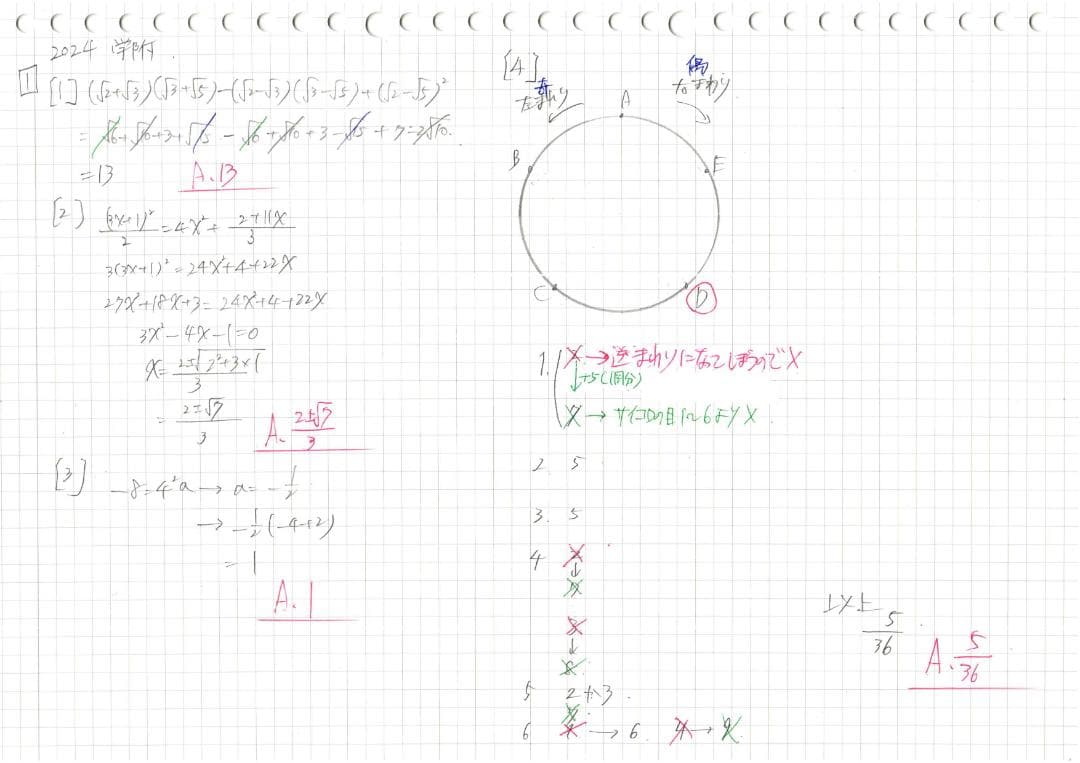 2024 学附.
1
[1] (√2+√3)(√3+√5)-(√2-√3)(√3-√5)+(√2-√5)²
= √6+√10+3+√15 - √6+√10+3-√15+7-2√10.
=13
A.13
[2] (3x+1)²/2=4x²+ 2+11x/3
3(3x+1)²=24x²+4+22x
27x²+18x+3=24x²+4+22x
3x²-4x-1=0
x= 2±√2²+3×1/3
= 2±√7/3
A. 2±√7/3
[3] -8=4²a→a=-1/2
→ -1/2(-4+2)
= 1
A.1
[4]
奇
左まわり
偶
右まわり
A
B
E
C
D
1.
→逆まわりになってしまうので×
↓+5(1周分)
→サイコロの目1~6より×
2. 5
3. 5
4
↓
↓
5 2か3.
6 → 6. →
以上 5/36
A. 5/36